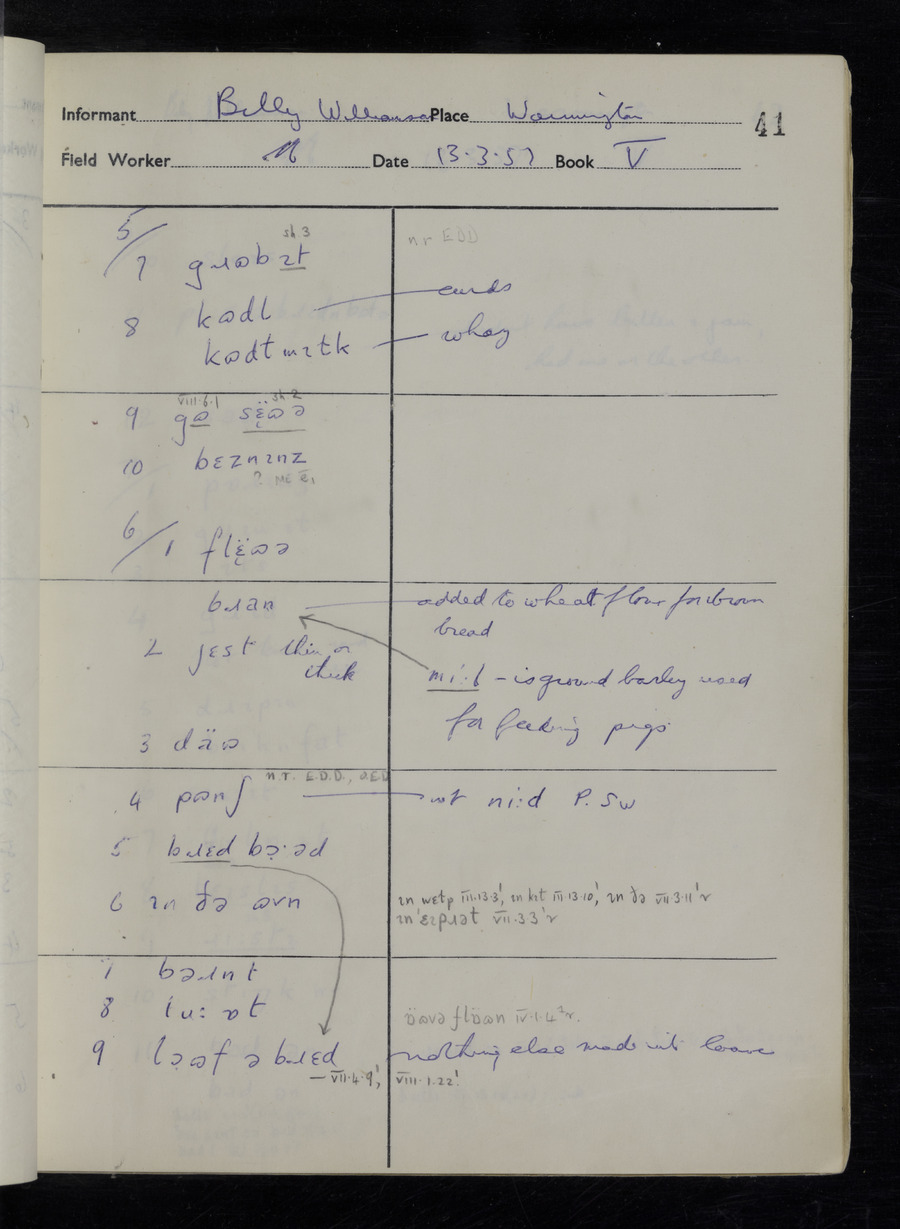 Informant Billy Williamson Place Warmington 41
Field Worker Date 13.3.57 Book V
5/
sh.3
7 gɹɷbɪt
n r EDD
8 kɷdl — curds
kɷdtmɪtk — whey
VIII.6.1 sh.2
9 gɷ sɛ̈ɷə
10 bɛznɪnz
? ME ē,
6/1 flɛ̈ɷə
bɹan — added to wheat flour for brown
bread
2 jɛst thin or
thick
mi:ɫ – is ground barley used
for feeding pigs
3 däɷ
n.r. E.D.D., OED
4 pɷnʃ — not ni:d P. Sw
5 bɹɛd bɔ̣·əd
6 ɪn ðə ɷvn
ɪn wɛtp III.13.3¹, ɪn kɪt III.13.10¹, ɪn ðə VII.3.11¹ r
ɪn ɛɪpɹət VII.3.3¹r
7 bəɹnt
8 ɩu: ɒt
öɷvə flöɷn IV.1.4²r.
9 lɔ̣ɷf ə bɹɛd nothing else made into loaves
– VII.4.9¹, VIII.1.22¹